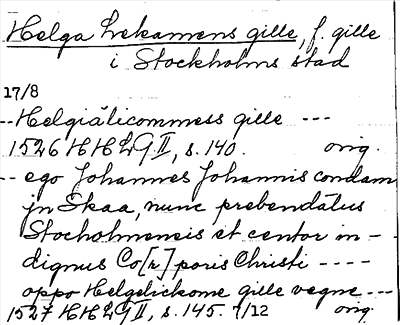 Helga Lekamens gille, f. gille
i Stockholms stad
17/8
-- Helgiålicommess gille ---
1526 HHLG II, s. 140. orig.
-- ego Johannes Johannis condam
jn Skaa, nunc prebendatus
Stocholmensis et cantor in-
dignus Co[r]poris Christi ----
oppo Helgelickome gille vegne ---
1527 HHLG II, s. 145. 7/12 orig.